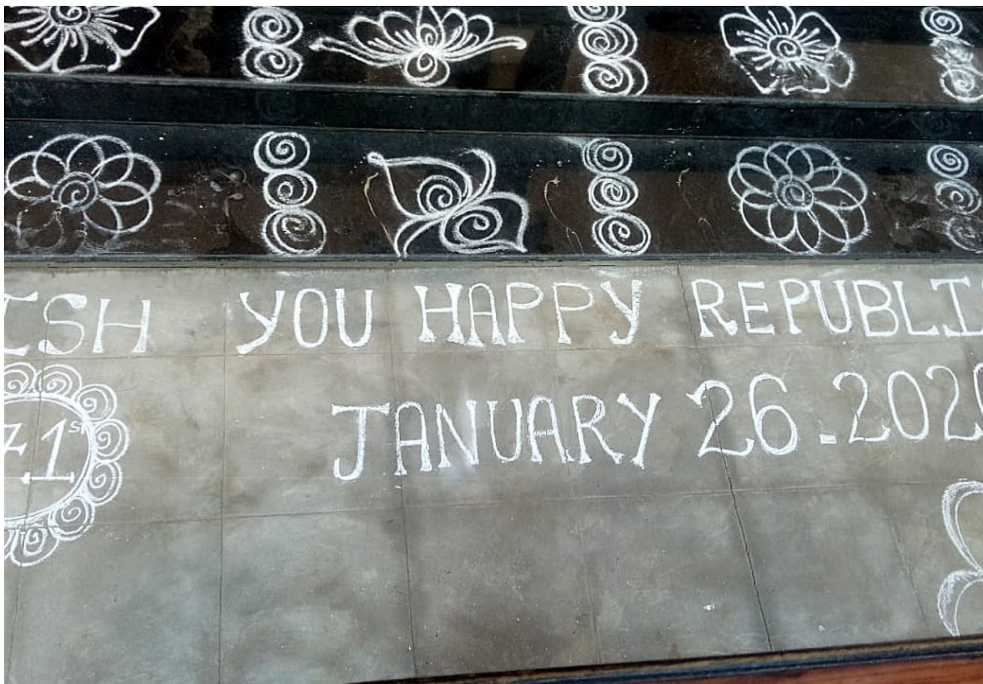 ISH YOU HAPPY REPUBLI
71ST
JANUARY 26.2020